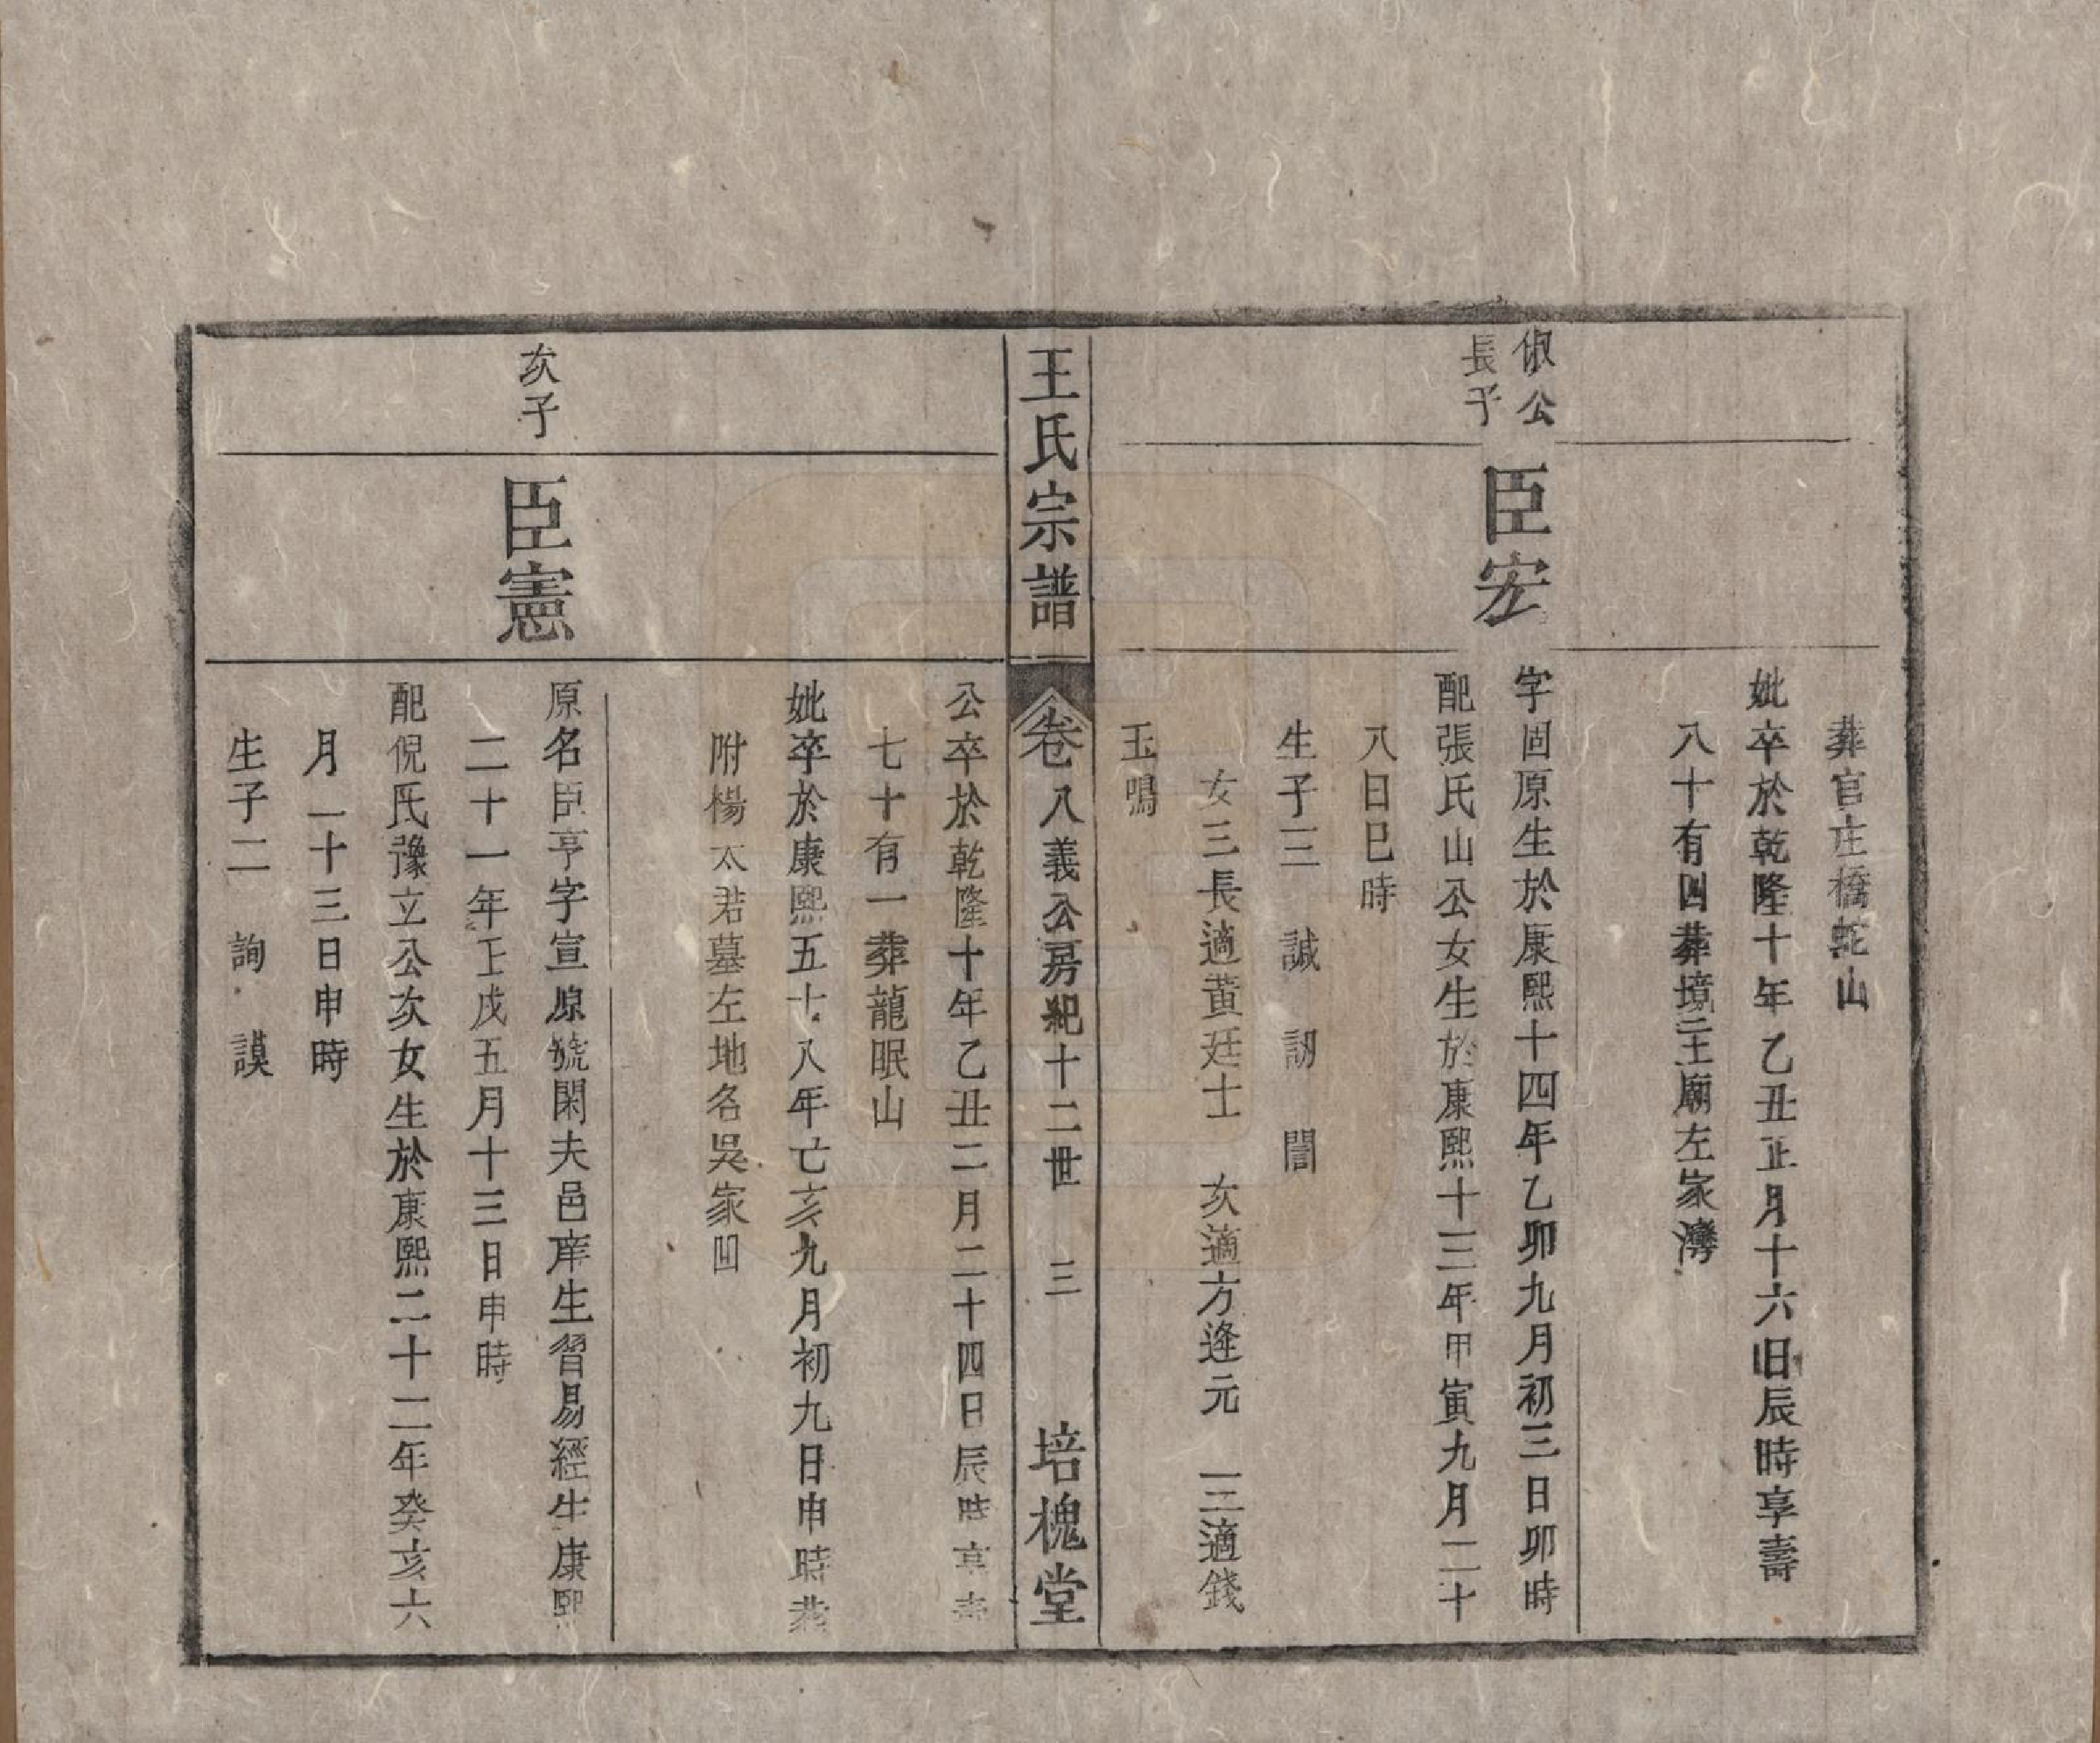 葬官庄橋蛇山
妣卒於乾隆十年乙丑正月十六日辰時享壽
八十有四葬境主廟左家灣
俶公
長子
臣宏
字固原生於康熙十四年乙卯九月初三日卯時
配張氏山公女生於康熙十三年甲寅九月二十
八日巳時
生子三 誠 訒 誾
女三長適黃廷士 次適方逢元 三適錢
玉鳴
王氏宗譜 卷八義公房紀十二世 三 培槐堂
公卒於乾隆十年乙丑二月二十四日辰時享壽
七十有一葬龍眠山
妣卒於康熙五十八年亡亥九月初九日申時葬
附楊太君墓左地名吳家凹
次子
臣憲
原名臣亨字宣原號閑夫邑庠生習易經生康熙
二十一年壬戌五月十三日申時
配倪氏豫立公次女生於康熙二十二年癸亥六
月一十三日申時
生子二 詢 謨